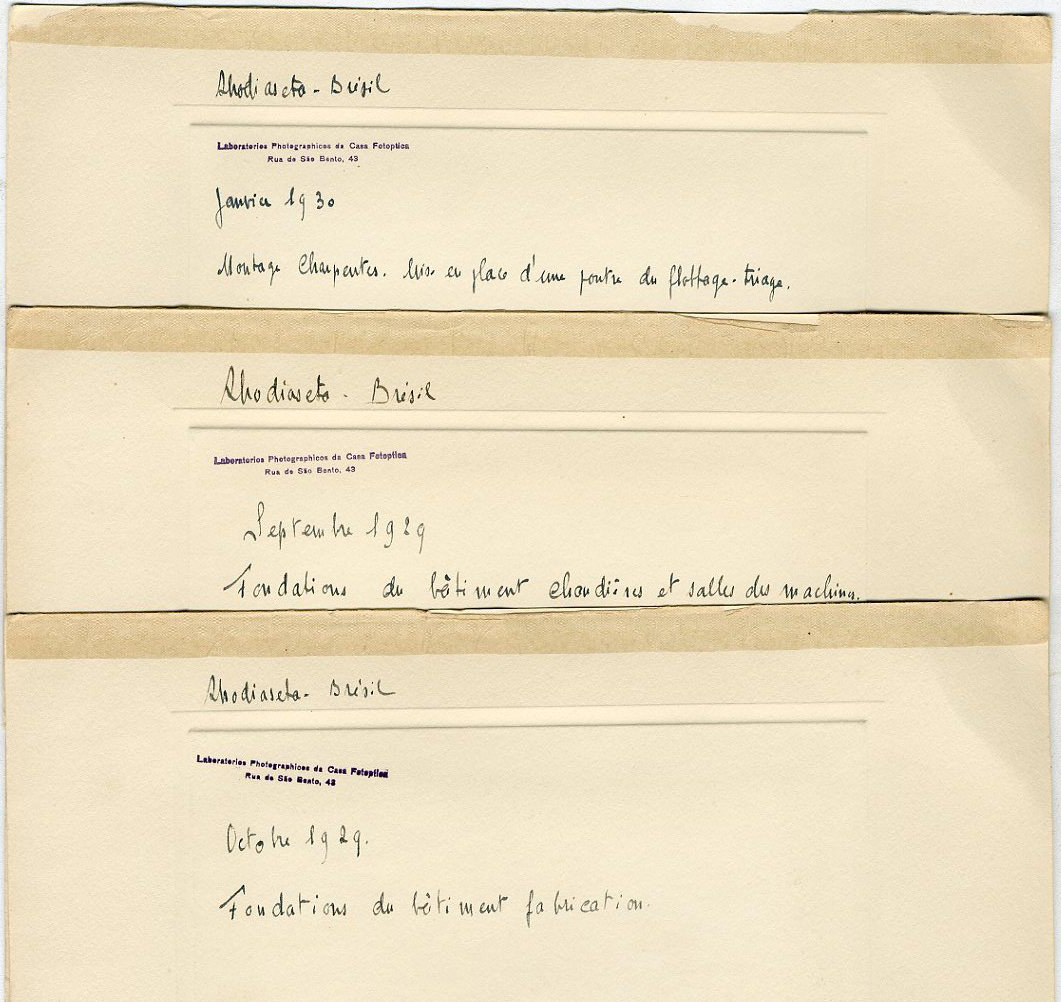 Rhodiaseta - Brésil
Laboratorios Photographicos da Casa Fotoptica
Rua de São Bento, 43
Janvier 1930
Montage Charpentes. Mise en place d'une poutre du flottage-triage.
Rhodiaseta - Brésil
Laboratorios Photographicos da Casa Fotoptica
Rua de São Bento, 43
Septembre 1929
Fondations du bâtiment chaudières et salles des machines.
Rhodiaseta - Brésil
Laboratorios Photographicos da Casa Fotoptica
Rua de São Bento, 43
Octobre 1929.
Fondations du bâtiment fabrication.